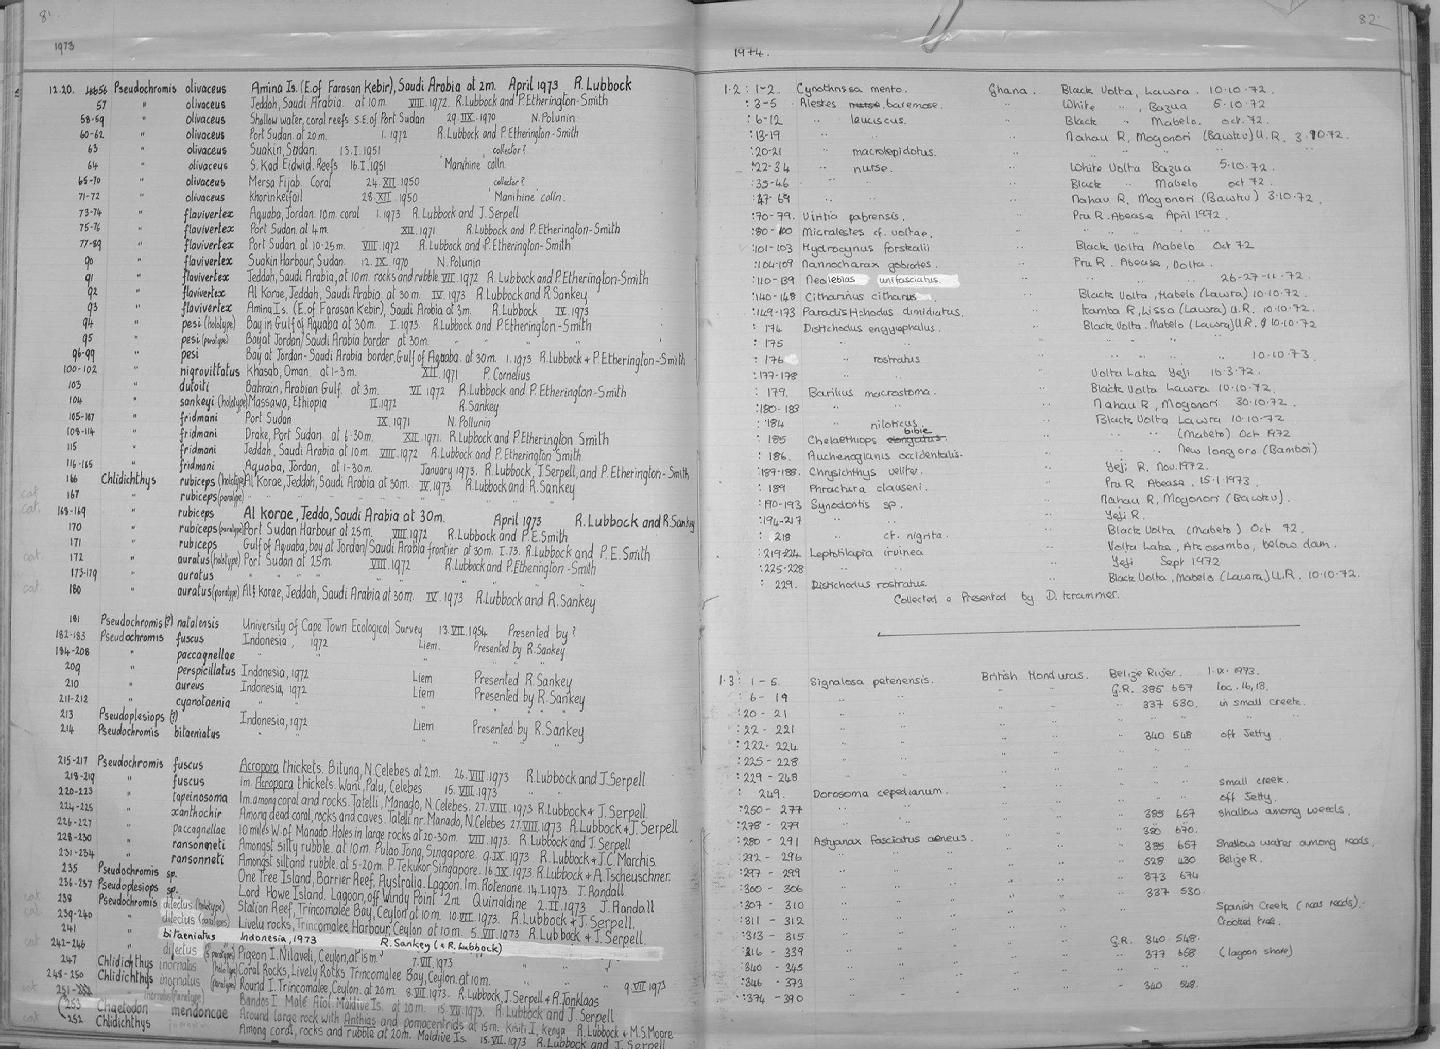 81
1973
12.20. 46656 Pseudochromis olivaceus Amina Is. (E. of Farasan Kebir), Saudi Arabia at 2m. April 1973 R. Lubbock
57 " olivaceus Jeddah, Saudi Arabia. at 10m. VIII. 1972. R. Lubbock and P. Etherington-Smith
58-59 " olivaceus Shallow water, coral reefs S.E. of Port Sudan 29.IX.1970 N. Polunin
60-62 " olivaceus Port Sudan at 20m. 1.1972 R. Lubbock and P. Etherington-Smith
63 " olivaceus Suakin, Sudan. 13.I.1951 collector?
64 " olivaceus S. Kad Eidwid. Reefs 16.I.1951 'Manihine' colln.
65-70 " olivaceus Mersa Fijab. Coral 24.XII.1950 collector?
71-72 " olivaceus Khorinkeifail 28.XII.1950 Manihine colln.
73-74 " flavivertex Aquaba, Jordan. 10m. coral 1.1973 R. Lubbock and J. Serpell
75-76 " flavivertex Port Sudan at 4m. XII.1971 R. Lubbock and P. Etherington-Smith
77-89 " flavivertex Port Sudan at 10-25m. VIII.1972 R. Lubbock and P. Etherington-Smith
90 " flavivertex Suakin Harbour, Sudan. 12.IX.1970 N. Polunin
91 " flavivertex Jeddah, Saudi Arabia, at 10m. rocks and rubble VII.1972 R. Lubbock and P. Etherington-Smith
92 " flavivertex Al Korae, Jeddah, Saudi Arabia at 30m. IV.1973 R. Lubbock and R. Sankey
93 " flavivertex Amina Is. (E. of Farasan Kebir), Saudi Arabia at 3m. R. Lubbock IV.1973
94 " pesi (holotype) Bay in Gulf of Aquaba at 30m. I.1973. R. Lubbock and P. Etherington-Smith
95 " pesi (paratype) Bay at Jordan/Saudi Arabia border at 30m. " " "
96-99 " pesi Bay at Jordan-Saudi Arabia border, Gulf of Aqaba. at 30m. 1.1973 R. Lubbock & P. Etherington-Smith
100-102 " nigrovittatus Khasab, Oman. at 1-3m. XII.1971 P. Cornelius
103 " dutoiti Bahrain, Arabian Gulf. at 3m. VI.1972 R. Lubbock and P. Etherington-Smith
104 " sankeyi (holotype) Massawa, Ethiopia II.1972 R. Sankey
105-107 " fridmani Port Sudan IX.1971 N. Pollunin
108-114 " fridmani Drake, Port Sudan. at 6-30m. XII.1971. R. Lubbock and P. Etherington Smith
115 " fridmani Jeddah, Saudi Arabia at 10m. VIII.1972 R. Lubbock and P. Etherington-Smith
116-165 " fridmani Aquaba, Jordan, at 1-30m. January 1973. R. Lubbock, J. Serpell, and P. Etherington-Smith
166 Chlidichthys rubiceps (holotype) Al Korae, Jeddah, Saudi Arabia at 30m. IV.1973. R. Lubbock and R. Sankey
cat. 167 " rubiceps (paratype) " " "
cat. 168-169 " rubiceps Al Korae, Jedda, Saudi Arabia at 30m. April 1973 R. Lubbock and R. Sankey
170 " rubiceps (paratype) Port Sudan Harbour at 25m. VIII.1972 R. Lubbock and P.E. Smith
171 " rubiceps Gulf of Aquaba, bay at Jordan/Saudi Arabia frontier at 30m. I.73. R. Lubbock and P.E. Smith
cat. 172 " auratus (holotype) Port Sudan at 25m. VIII.1972. R. Lubbock and P. Etherington-Smith
173-179 " auratus " " "
cat. 180 " auratus (paratype) Al Korae, Jeddah, Saudi Arabia at 30m. IV.1973 R. Lubbock and R. Sankey
181 Pseudochromis (?) natalensis University of Cape Town Ecological Survey 13.VII.1954 Presented by ?
182-183 Pseudochromis fuscus Indonesia, 1972 Liem. Presented by R. Sankey
184-208 " paccagnellae " " "
209 " perspicillatus Indonesia, 1972 Liem Presented R. Sankey
210 " aureus Indonesia, 1972 Liem Presented by R. Sankey
211-212 " cyanotaenia " " "
213 Pseudoplesiops (?) Indonesia, 1972 Liem Presented by R. Sankey
214 Pseudochromis bitaeniatus " " "
215-217 Pseudochromis fuscus Acropora thickets. Bitung, N. Celebes at 2m. 26.VIII.1973 R. Lubbock and J. Serpell
218-219 " fuscus 1m. Acropora thickets. Wani, Palu, Celebes 15.VIII.1973 " "
220-223 " tapeinosoma 1m. among coral and rocks. Tatelli, Manado, N. Celebes. 27.VIII.1973 R. Lubbock & J. Serpell
224-225 " xanthochir Among dead coral, rocks and caves. Tateli nr. Manado, N. Celebes 27.VIII.1973. R. Lubbock & J. Serpell
226-227 " paccagnellae 10 miles W. of Manado. Holes in large rocks at 20-30m. VIII.1973. R. Lubbock and J. Serpell
228-230 " ransonneti Amongst silty rubble. at 10m. Pulao Jong, Singapore. 9.IX.1973 R. Lubbock & J.C. Marchis.
231-234 " ransonneti Amongst silt and rubble. at 5-20m. P. Tekukor Singapore. 16.IX.1973 R. Lubbock & A. Tscheuschner.
235 Pseudochromis sp. One Tree Island, Barrier Reef, Australia. Lagoon. 1m. Rotenone. 14.1.1973. J. Randall
236-237 Pseudoplesiops sp. Lord Howe Island. Lagoon, off Windy Point 2m. Quinaldine 2.II.1973 J. Randall
cat. 238 Pseudochromis dilectus (holotype) Station Reef, Trincomalee Bay, Ceylon at 10m. 10.VII.1973. R. Lubbock & J. Serpell.
cat. 239-240 " dilectus (paratypes) Lively rocks, Trincomalee Harbour, Ceylon at 10m. 5.VII.1973 R. Lubbock & J. Serpell.
241 " bitaeniatus Indonesia, 1973 R. Sankey (& R. Lubbock)
cat. 242-246 " dilectus (5 paratypes) Pigeon I. Nilaveli, Ceylon, at 15m. 7.VII.1973 " "
247 Chlidichthys inornatus (holotype) Coral Rocks, Lively Rocks Trincomalee Bay, Ceylon at 10m. 9.VII.1973
248-250 Chlidichthys inornatus (paratype) Round I. Trincomalee, Ceylon. at 20m. 8.VII.1973. R. Lubbock, J. Serpell & A. Jonklaas
cat. 251-252 " inornatus (paratype) Bandos I. Malé Atol. Maldive Is. at 20m. 15.VII.1973. R. Lubbock and J. Serpell
253 Chaetodon mendoncae Around large rock with Anthias and pomacentrids at 15m. Kisiti I, Kenya R. Lubbock & M.S. Moore
cat 252 Chlidichthys Among coral, rocks and rubble at 20m. Maldive Is. 15.VII.1973. R. Lubbock and J. Serpell
82
1974.
1.2: 1-2. Cynothrissa mento. Ghana. Black Volta, Lawra. 10.10.72.
: 3-5 Alestes baremose. " White " , Bazua 5.10.72
: 6-12 " leuciscus. " Black " Mabelo. Oct. 72.
: 13-19 " " " Nahau R, Mogonori (Bawku) U.R. 3.10.72.
: 20-21 " macrolepidotus. " " " "
: 22-34 " nurse. " White Volta Bazua 5.10.72.
: 35-46 " " Black " Mabelo Oct 72
: 47-69 " " Nahau R, Mogonori (Bawku) 3.10.72.
: 70-79. Virilia pabrensis. " Pru R. Abease April 1972.
: 80-100 Micralestes cf. voltae. " " " "
: 101-103 Hydrocynus forskalii " Black Volta Mabelo Oct 72
: 104-109 Nannocharax gobioides. " Pru R. Abease, Volta.
: 110-139 Neolebias unifasciatus. " " 26-27-11-72.
: 140-148 Citharinus citharus " Black Volta, Mabelo (Lawra) 10.10.72.
: 149-173 Paradistichodus dimidiatus. " Kamba R, Lissa (Lawra) U.R. 10.10.72.
: 174 Distichodus engycephalus. " Black Volta. Mabelo (Lawra) U.R. 10.10.72.
: 175 " " " "
: 176 " rostratus " " " 10.10.73.
: 177-178 " " Volta Lake Yeji 16.3.72.
: 179. Barilius macrostoma. " Black Volta Lawra 10.10.72.
: 180-183 " " Nahau R, Mogonori 30.10.72.
: 184 " niloticus. " Black Volta Lawra 10.10.72
: 185 Chelaethiops bibie " " " (Mabelo) Oct 1972
: 186. Auchenoglanis occidentalis. " " New Longoro (Bamboi)
: 187-188. Chrysichthys velifer. " Yeji R. Nov. 1972.
: 189 Phractura clauseni. " Pru R Abease. 15.1.1973
: 190-193 Synodontis sp. " Nahau R, Mogonori (Bawku).
: 194-217 " " Yeji R.
: 218 " cf. nigrita. " Black Volta (Mabelo) Oct 72.
: 219-224 Leptotilapia irvinea " Volta Lake, Atosombo, below dam.
: 225-228 " " Yeji Sept 1972
: 229. Distichodus rostratus. " Black Volta, Mabelo (Lawra) U.R. 10.10.72.
Collected & Presented by D. Krammer.
1.3: 1-5. Signalosa petenensis. British Honduras. Belize River. 1.ix.1973.
: 6-19 " " " " G.R. 385 657 loc. 16, 18.
: 20-21 " " " " " 337 630. in small creek.
: 22-221 " " " " " " "
: 222-224 " " " " " 340 548 off Jetty
: 225-228 " " " "
: 229-248 " " " "
: 249. Dorosoma cepedianum. " " " " small creek.
: 250-277 " " " " " " off Jetty.
: 278-279 " " " " " 385 657 shallow among weeds.
: 280-291 Astyanax fasciatus aeneus. " " " 380 670.
: 292-296 " " " " " 385 657 Shallow water among reeds.
: 297-299 " " " " " 528 430 Belize R.
: 300-306 " " " " " 373 674
: 307-310 " " " " " 337 530.
: 311-312 " " " " Spanish Creek (nr roads).
: 313-315 " " " " Crooked tree.
: 316-339 " " " " G.R. 340 548.
: 340-345 " " " " " 377 658 (lagoon shore)
: 346-373 " " " " " " "
: 374-390 " " " " " 340 548.